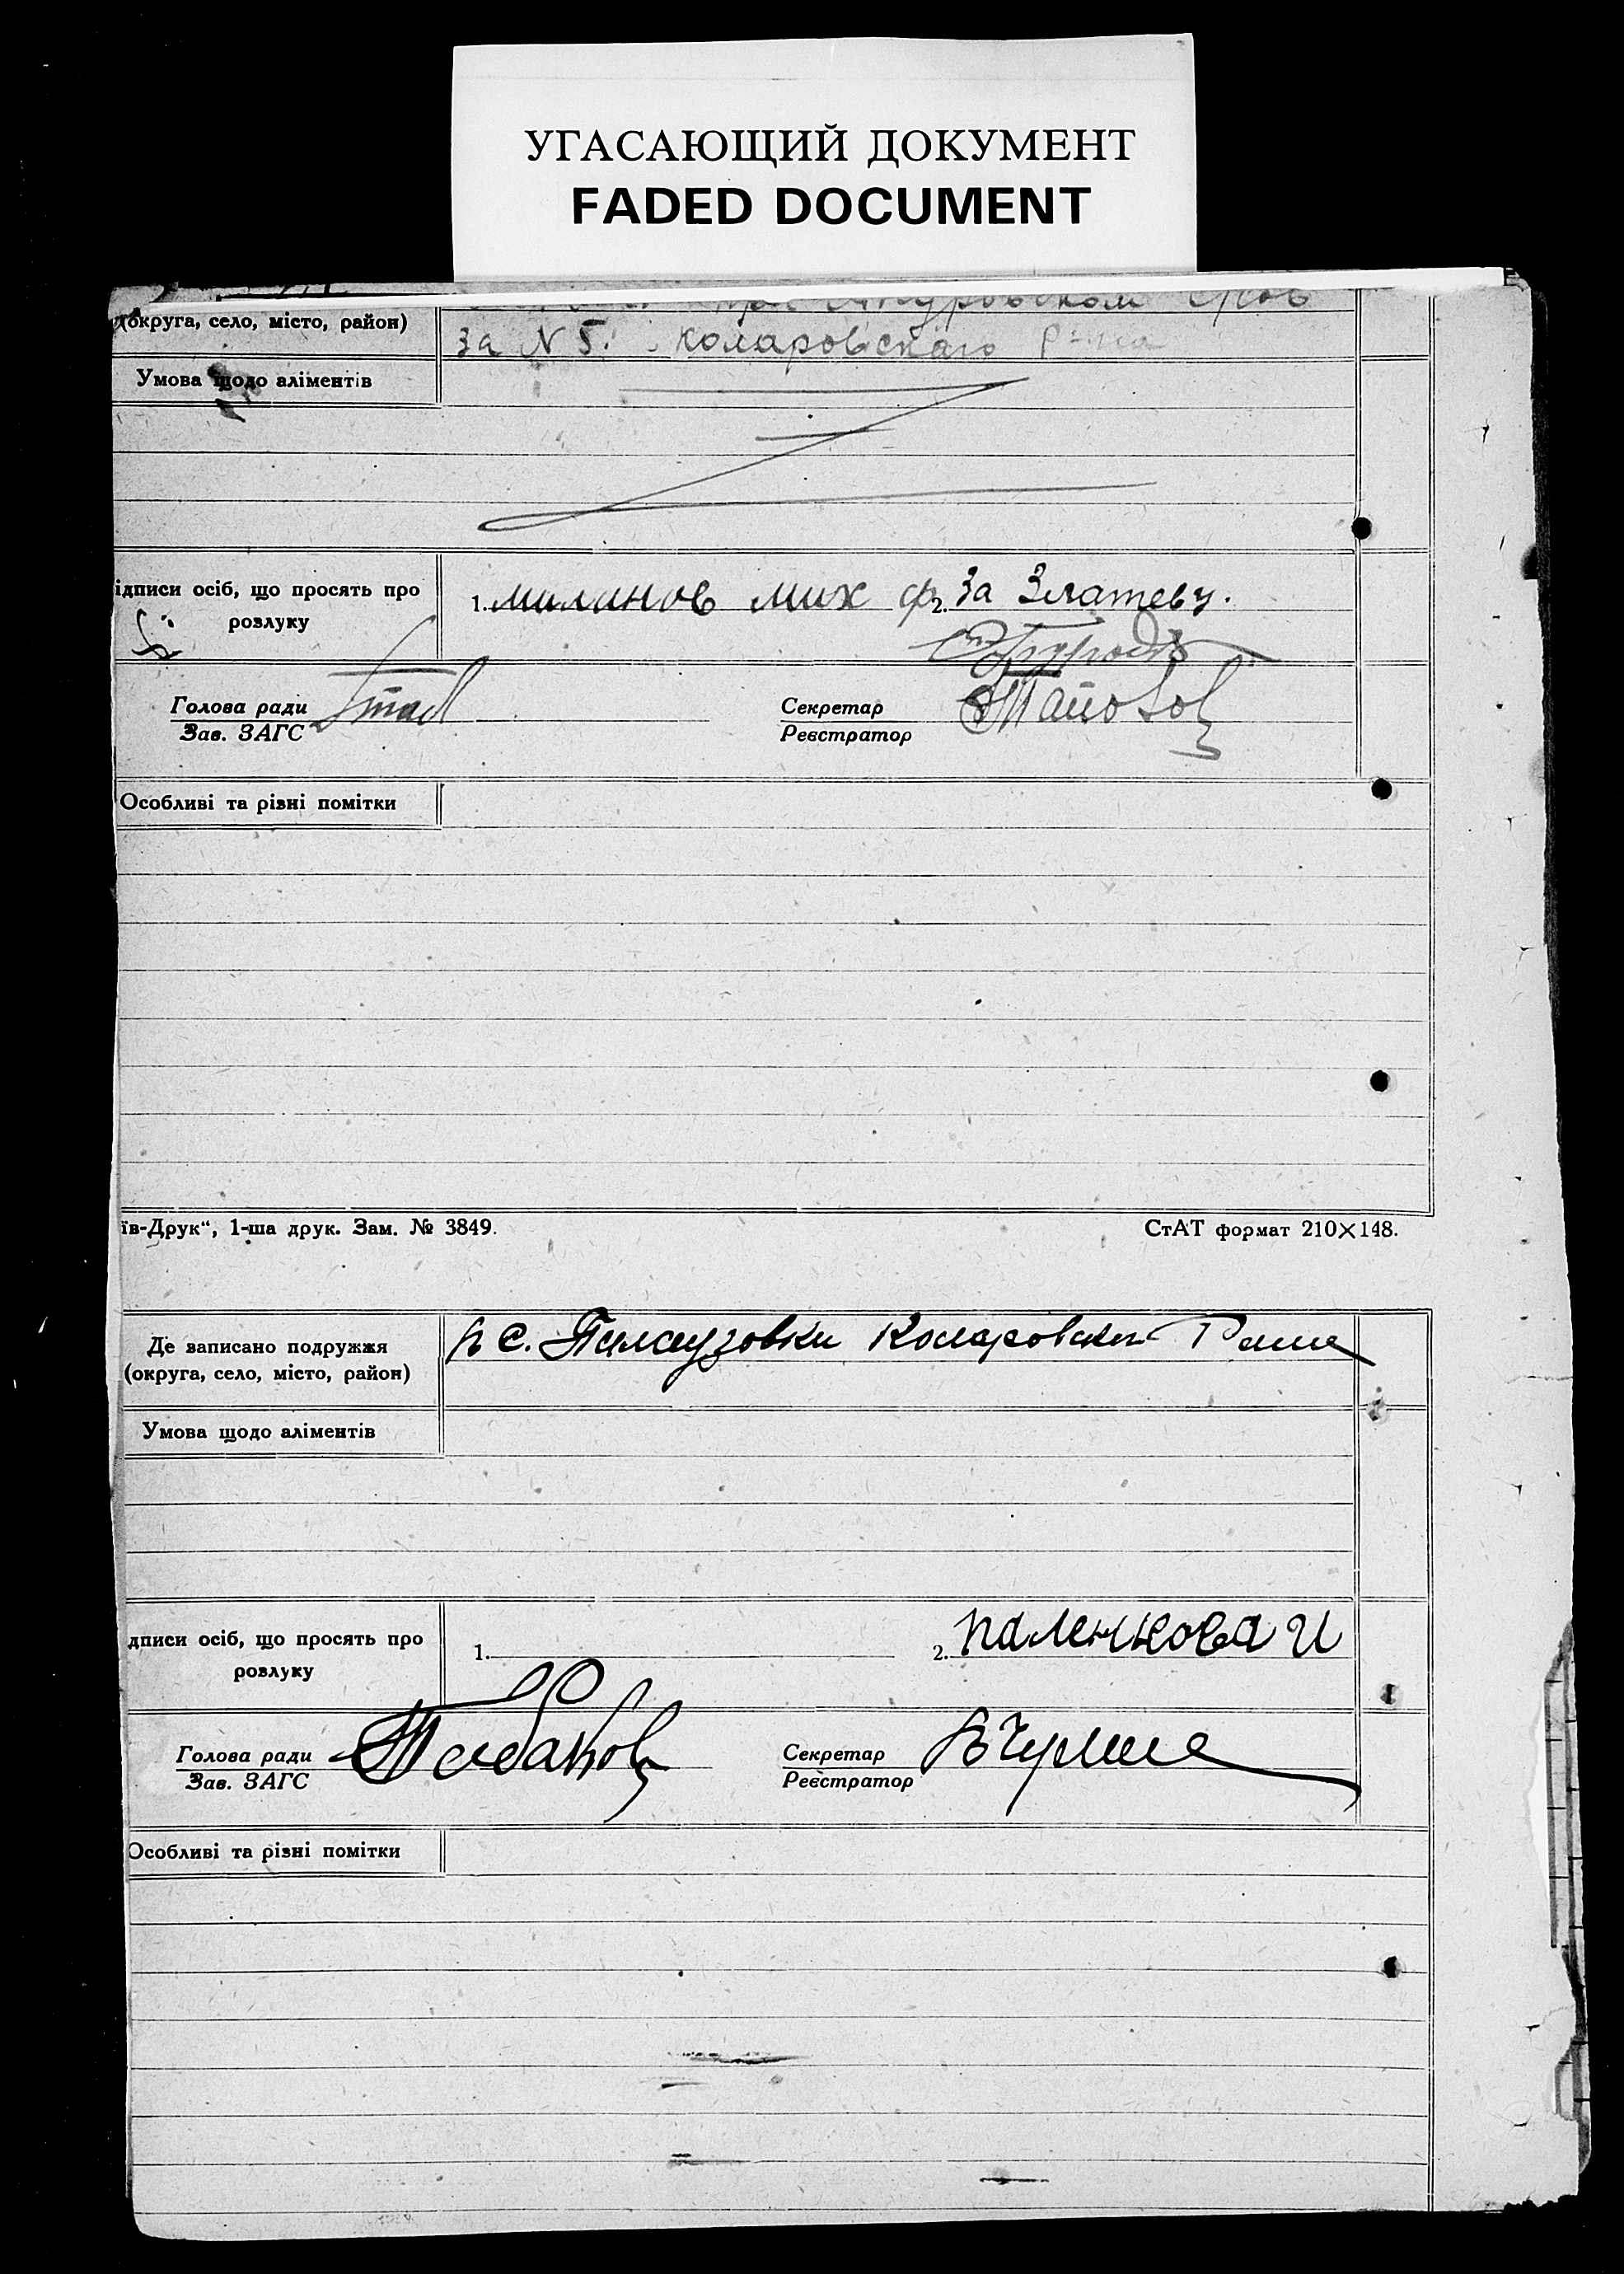 УГАСАЮЩИЙ ДОКУМЕНТ
FADED DOCUMENT
(округа, село, місто, район)
за N 5. Коларовскаго Р-на
Умова щодо аліментів
ідписи осіб, що просять про
розлуку
1. Милинов Мих ф 2. За Златеву.
Голова ради
Зав. ЗАГС
Секретар
Реєстратор
Особливі та різні помітки
їв-Друк“, 1-ша друк. Зам. № 3849.
СтАТ формат 210×148.
Де записано подружжя
(округа, село, місто, район)
в с. Коларовског Р
Умова щодо аліментів
дписи осіб, що просять про
розлуку
1. 2. Паленкова И
Голова ради
Зав. ЗАГС
Табаков
Секретар
Реєстратор
Особливі та різні помітки